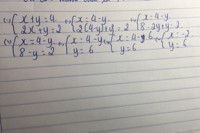 { x + y = 4 2x + y = 2 (=) { x = 4 - y 2(4-y) + y = 2 (=) { x = 4 - y 8 - 2y + y = 2
(=) { x = 4 - y 8 - y = 2 (=) { x = 4 - y y = 6 (=) { x = 4 - 6 y = 6 (=) { x = -2 y = 6